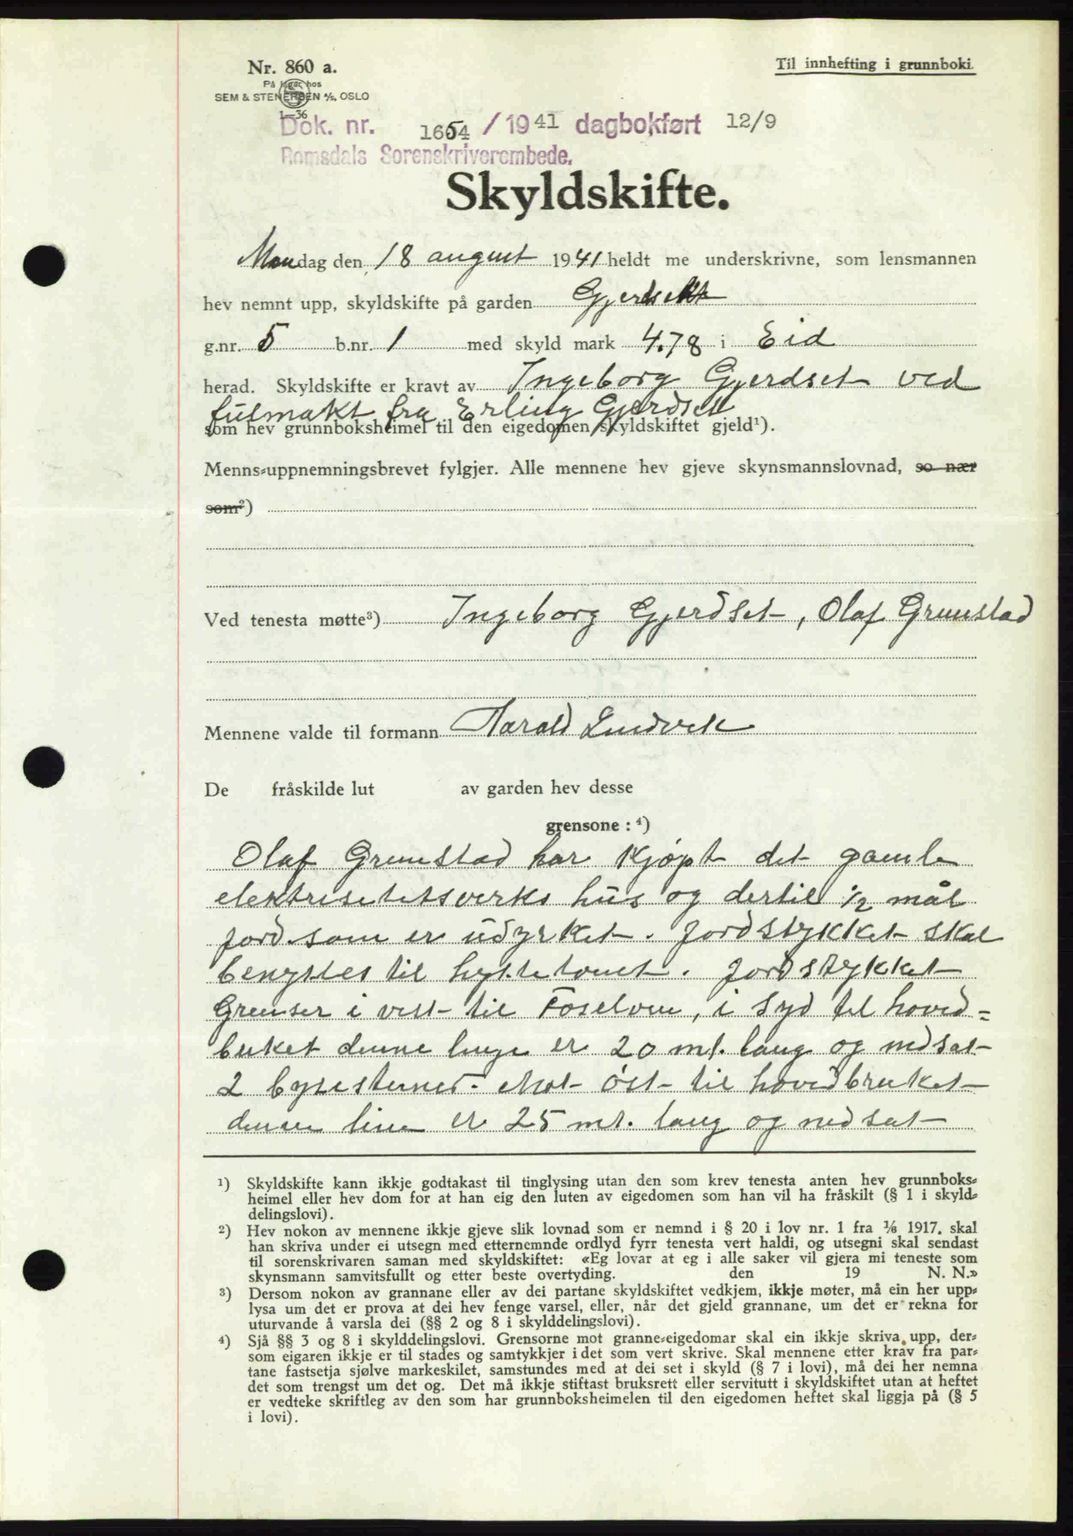 Nr. 860 a.
Til innhefting i grunnboki.
På lager hos
SEM & STENERSEN A/S, OSLO
1-36
Dok. nr. 1654 / 1941 dagbokført 12/9
Romsdals Sorenskriverembede.
Skyldskifte.
Mandag den 18 august 1941 heldt me underskrivne, som lensmannen
hev nemnt upp, skyldskifte på garden Gjerdset
g.nr. 5 b.nr. 1 med skyld mark 4.78 i Eid
herad. Skyldskifte er kravt av Ingeborg Gjerdset ved
fulmakt fra Erling Gjerdset
som hev grunnboksheimel til den eigedomen skyldskiftet gjeld¹).
Menns-uppnemningsbrevet fylgjer. Alle mennene hev gjeve skynsmannslovnad, so nær
som²)
Ved tenesta møtte³) Ingeborg Gjerdset, Olaf Grunstad
Mennene valde til formann Harald Lindvik
De fråskilde lut av garden hev desse
grensone : ⁴)
Olaf Grunstad har kjøpt det gamle
elektrisitetsverks hus og dertil ½ mål
jord som er udyrket. Jordstykket skal
benyttes til hyttetomt. Jordstykket
Grenser i vest til Foselven, i Syd til hoved=
bruket denne linje er 20 mt. lang og nedsat
2 bytesteiner. Mot øst til hovedbruket
denne linie er 25 mt. lang og nedsat
¹) Skyldskifte kann ikkje godtakast til tinglysing utan den som krev tenesta anten hev grunnboks-
heimel eller hev dom for at han eig den luten av eigedomen som han vil ha fråskilt (§ 1 i skyld-
delingslovi).
²) Hev nokon av mennene ikkje gjeve slik lovnad som er nemnd i § 20 i lov nr. 1 fra 1/6 1917, skal
han skriva under ei utsegn med etternemnde ordlyd fyrr tenesta vert haldi, og utsegni skal sendast
til sorenskrivaren saman med skyldskiftet: «Eg lovar at eg i alle saker vil gjera mi teneste som
skynsmann samvitsfullt og etter beste overtyding. den 19 N. N.»
³) Dersom nokon av grannane eller av dei partane skyldskiftet vedkjem, ikkje møter, må ein her upp-
lysa um det er prova at dei hev fenge varsel, eller, når det gjeld grannane, um det er rekna for
uturvande å varsla dei (§§ 2 og 8 i skylddelingslovi).
⁴) Sjå §§ 3 og 8 i skylddelingslovi. Grensorne mot granne-eigedomar skal ein ikkje skriva upp, der-
som eigaren ikkje er til stades og samtykkjer i det som vert skrive. Skal mennene etter krav fra par-
tane fastsetja sjølve markeskilet, samstundes med at dei set i skyld (§ 7 i lovi), må dei her nemna
det som trengst um det og. Det må ikkje stiftast bruksrett eller servitutt i skyldskiftet utan at heftet
er vedteke skriftleg av den som har grunnboksheimelen til den eigedomen heftet skal liggja på (§ 5
i lovi).